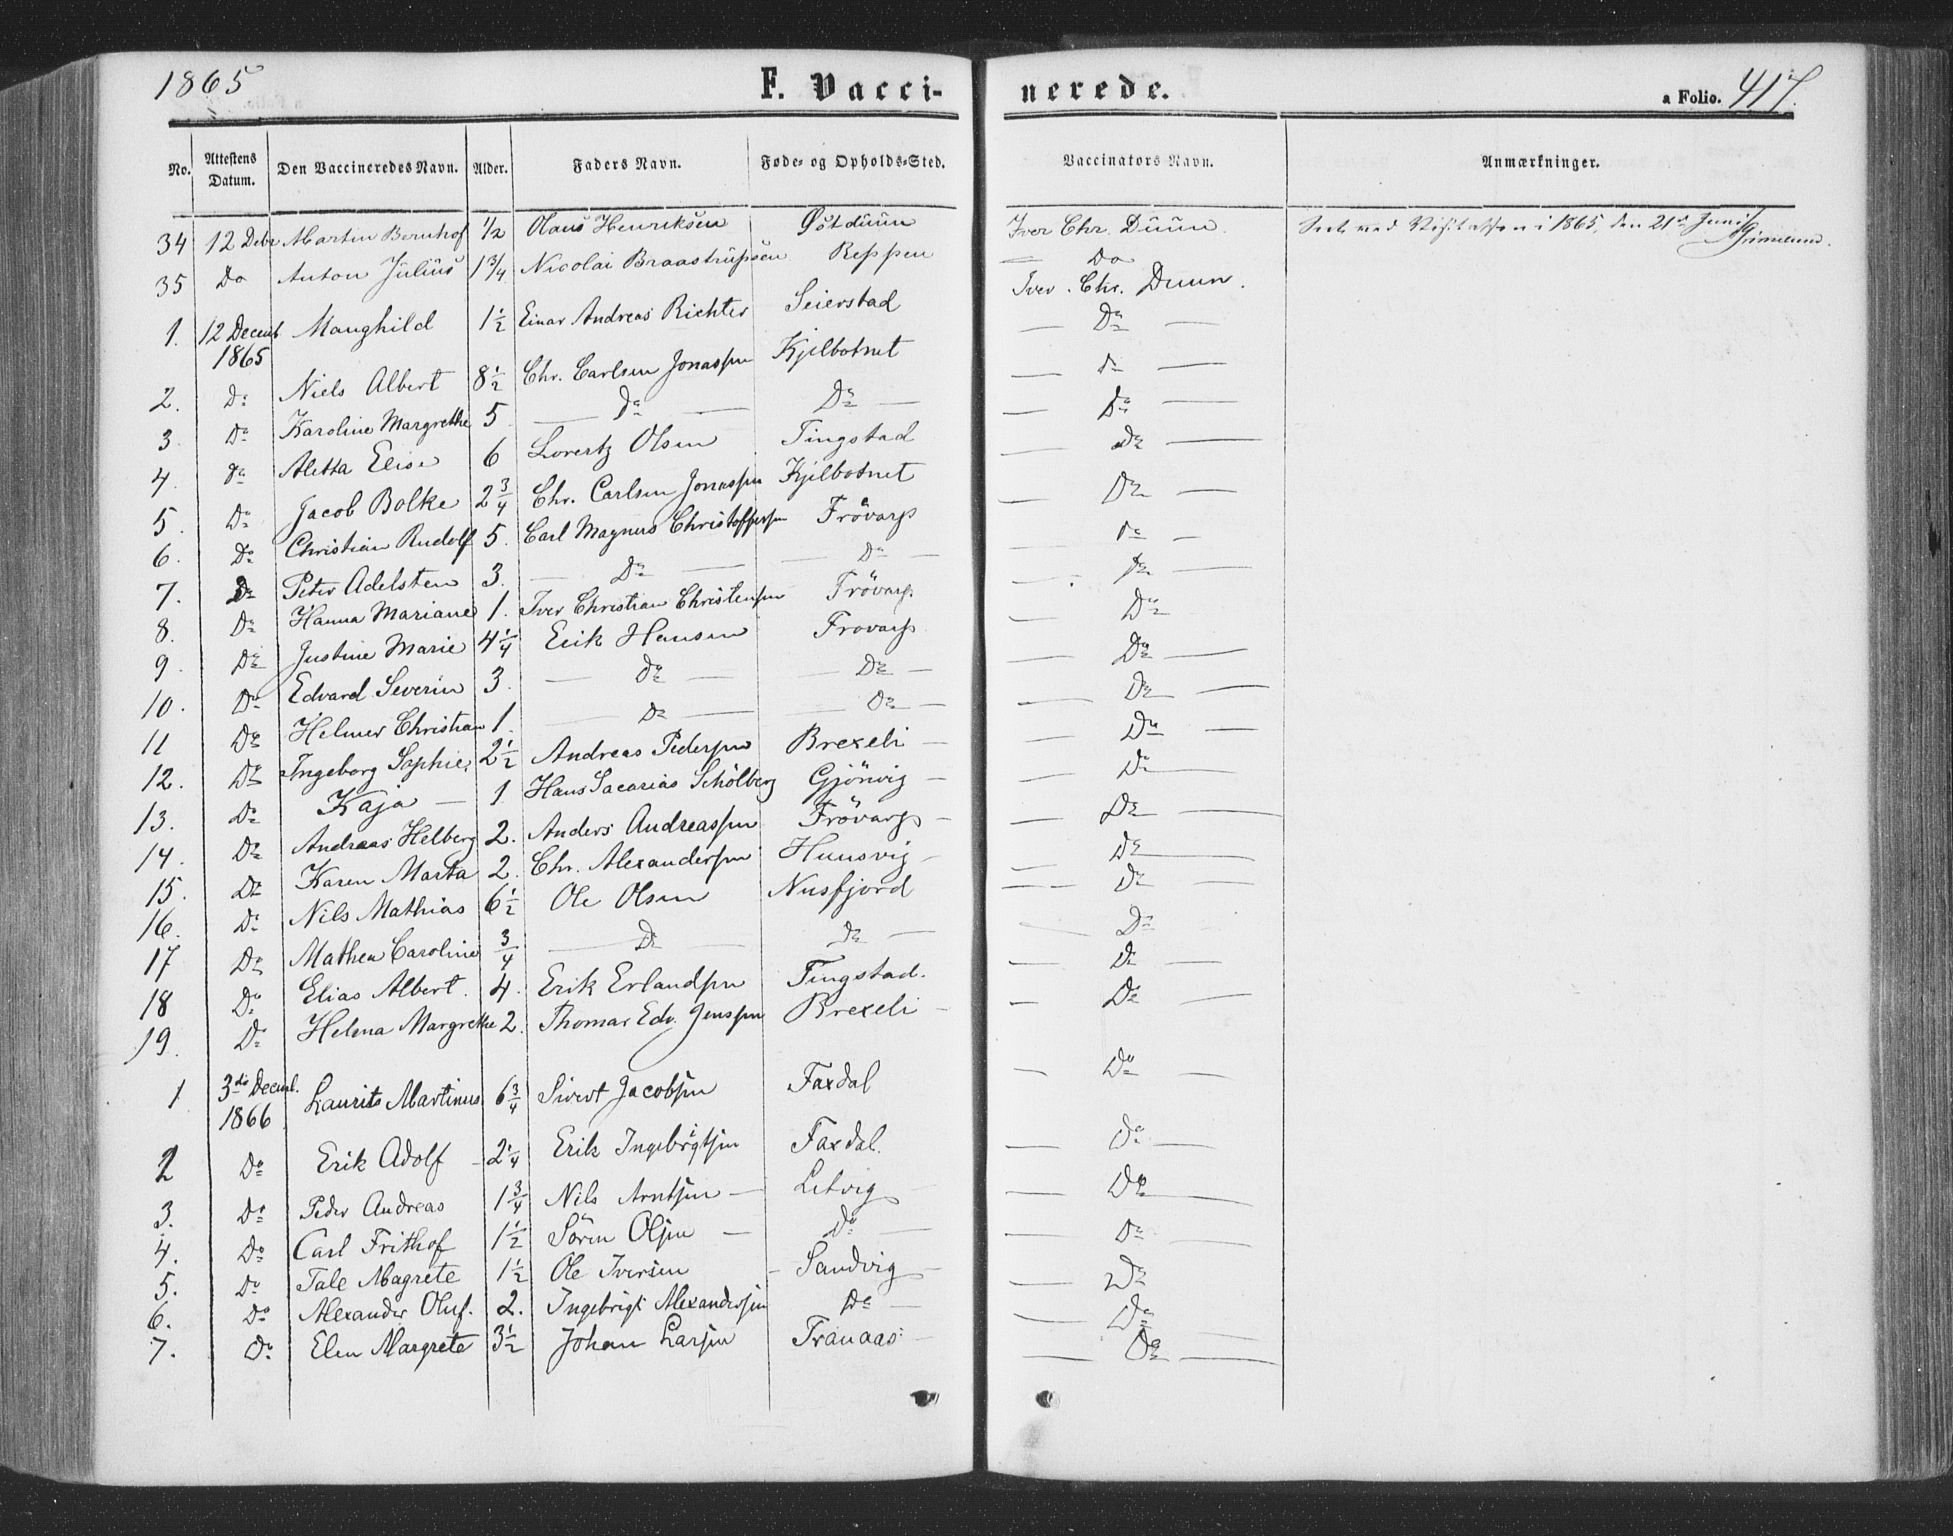 1865 F. Vacci- nerede. a Folio. 417.
No. Attestens Datum. Den Vaccineredes Navn. Alder. Faders Navn. Føde- og Opholds-Sted. Vaccinators Navn. Anmærkninger.
34 12 Debr Martin Bernhof 1/2 Olaus Henriksen Østduun Iver Chr. Duun. Seet ved Visitatsen i 1865, den 21de Juni
35 Do Anton Julius 1 3/4 Nicolai Braastrupsen Reppen — Do
1. 12 Decemb 1865 Manghild 1 1/2 Einar Andreas Richter Seierstad Iver. Chr. Duun.
2. Do Niels Albert 8 1/2 Chr. Carlsen Jonassen Kjelbotnet — Do —
3. Do Karoline Margrethe 5 — Do — Do — — Do —
4. Do Aletta Elise 6 Lorentz Olsen Tingstad — Do —
5. Do Jacob Bolke 2 3/4 Chr. Carlsen Jonassen Kjelbotnet — Do —
6. Do Christian Rudolf 5. Carl Magnus Christoffersen Frövarp — Do —
7. Do Peter Adelsten 3. — Do — — Do — — Do —
8. Do Hanna Mariane 1. Iver Christian Christensen Frövarp — Do —
9. Do Justine Marie 4 1/4 Erik Hansen Frovarp — Do —
10. Do Edvard Severin 3. — Do — — Do — — Do —
11 Do Helmer Christian 1. — Do — — Do — — Do —
12. Do Ingeborg Sophie. 2 1/2 Andreas Pedersen Brexeli — — Do —
13. Do Kaja — 1 Hans Sacarias Schölberg Gjönvig — — Do —
14. Do Andreas Helberg 2. Anders Andreassen Frövarp — — Do —
15. Do Karen Marta 2. Chr. Alexandersen Huusvig — — Do —
16. Do Nils Mathias 6 1/2 Ole Olsen Nusfjord — Do —
17 Do Mathea Caroline 3/4 — Do — Do — — Do —
18 Do Elias Albert. 4. Erik Erlandsen Tingstad. — Do —
19. Do Helena Margrethe 2. Thomas Edv. Jenssen Brexeli — — Do —
1 3die Decemb. 1866 Laurits Martinus 6 3/4 Sivert Jacobsen Faxdal — Do —
2 Do Erik Adolf — 2 1/4 Erik Ingebrigtsen Faxdal. — Do —
3. Do Peder Andreas 1 3/4 Nils Arntsen — Letvig — — Do —
4. Do Carl Frithof 1 1/2 Sören Olsen — Do — — Do —
5. Do Tale Magrete 1 1/2 Ole Iversen — Sandvig — — Do —
6. Do Alexander Oluf. 2. Ingebrigt Alexandersen Do — — Do —
7. Do Elen Margrete 3 1/2 Johan Larsen Tranaas — — Do —